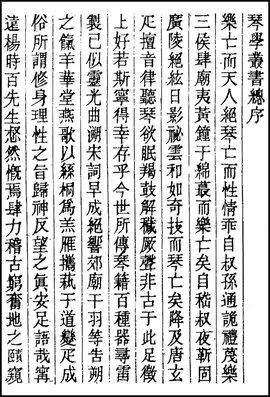 琴學叢書總序
樂亡而天人絕琴亡而性情乖自叔孫通詭禮蔑樂
三侯肆廟夷黃鐘于綿蕞而樂亡矣自嵇叔夜靳固
廣陵絕絃日影祕雲和如奇技而琴亡矣降及唐玄
疋擅音律聽琴欲眠羯鼓解穢厥聲非古于此足徵
上好若斯寧得幸存乎今世所傳琴籍百種器尋雷
製已似靈光曲溯宋詞早成絕響郊廟干羽等告朔
之餼羊華堂燕歌以絲桐爲羔雁攜蓺于道變疋成
俗所謂修身理性之旨歸神反望之眞安足語哉甯
遠楊時百先生惄然慨焉肆力稽古窮奮地之頤窺